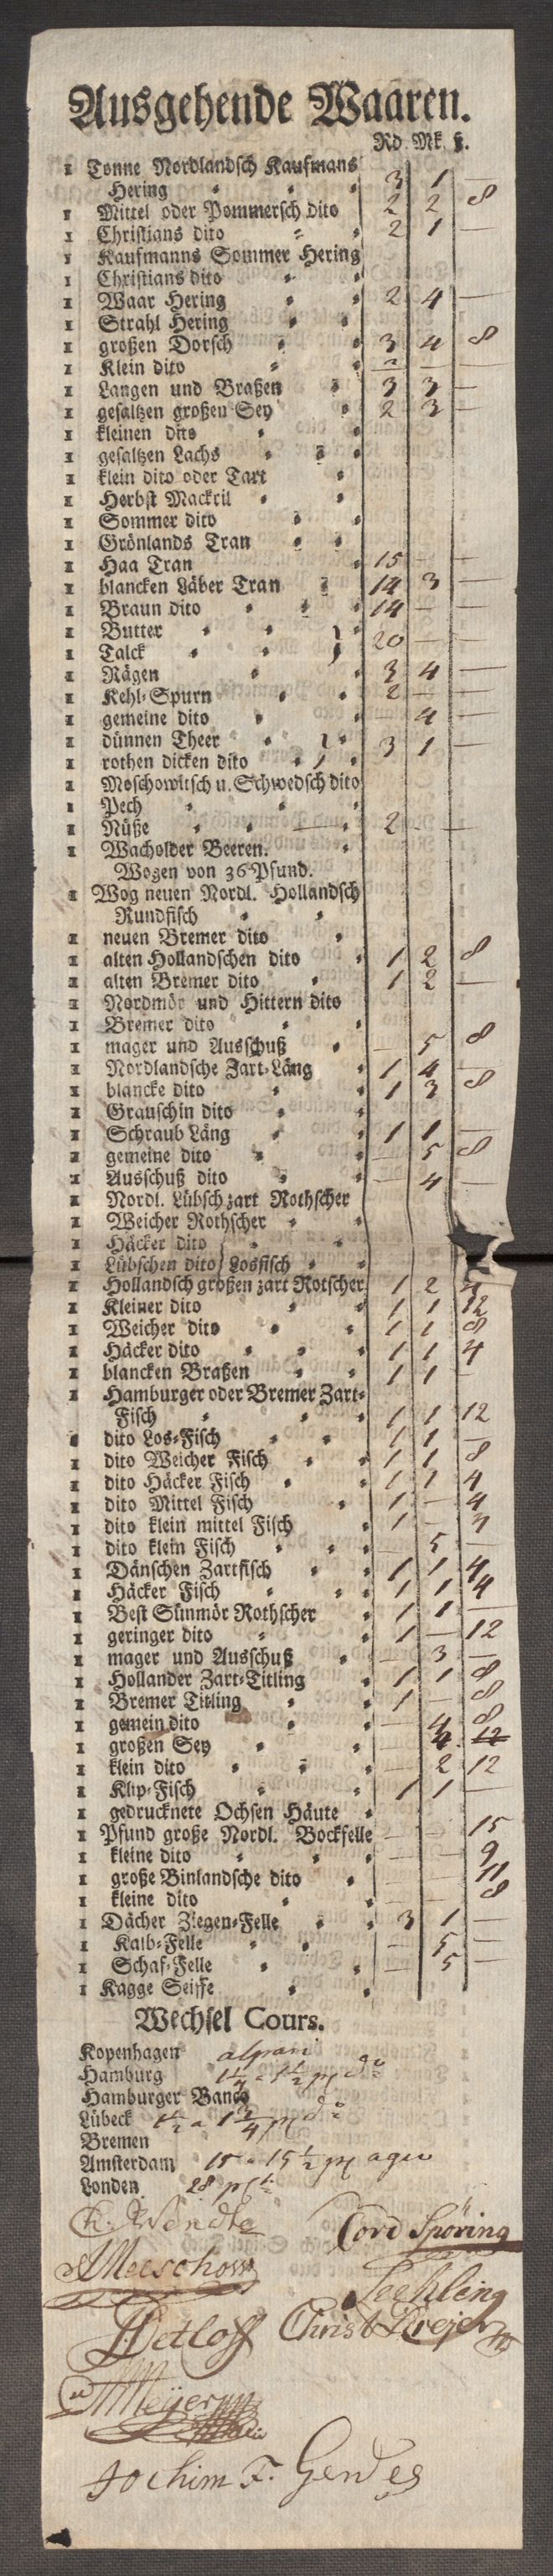 Ausgehende Waaren.
Rd. Mk. ß.
1 Tonne Nordlandsch Kaufmans
Hering 3 1 —
1 Mittel oder Pommersch dito 2 2 8
1 Christians dito 2 1 —
1 Kaufmanns Sommer Hering
1 Christians dito
1 Waar Hering 2 4 —
1 Strahl Hering
1 großen Dorsch 3 4 8
1 Klein dito 2 — —
1 Langen und Braßen 3 3 —
1 gesaltzen großen Sey 2 3 —
1 kleinen dito
1 gesaltzen Lachs
1 klein dito oder Tart
1 Herbst Mackril
1 Sommer dito
1 Grönlands Tran
1 Haa Tran 15 — —
1 blancken Läber Tran 14 3 —
1 Braun dito 14 — —
1 Butter
1 Talck 20 — —
1 Rägen 3 4 —
1 Kehl-Spurn 2 — —
1 gemeine dito 4 —
1 dünnen Theer
1 rothen dicken dito 3 1 —
1 Moschowitsch u. Schwedsch dito
1 Pech
1 Nüße 2 - —
1 Wacholder Beeren.
Wogen von 36 Pfund.
1 Wog neuen Nordl. Hollandsch
Rundfisch
1 neuen Bremer dito
1 alten Hollandschen dito 1 2 8
1 alten Bremer dito 1 2 —
1 Nordmör und Hittern dito
1 Bremer dito
1 mager und Ausschuß — 5 8
1 Nordlandsche Zart-Läng 1 4 —
1 blancke dito 1 3 8
1 Grauschin dito
1 Schraub Läng 1 1 —
1 gemeine dito — 5 8
1 Ausschuß dito — 4 —
1 Nordl. Lübsch zart Rothscher
1 Weicher Rothscher
1 Häcker dito
1 Lübschen dito Losfisch
1 Hollandsch großen zart Rotscher 1 2 4
1 Kleiner dito 1 1 12
1 Weicher dito 1 1 8
1 Häcker dito 1 1 4
1 blancken Braßen 1 1 —
1 Hamburger oder Bremer Zart-
Fisch 1 1 12
1 dito Los-Fisch 1 1 —
1 dito Weicher Fisch 1 1 8
1 dito Häcker Fisch 1 1 4
1 dito Mittel Fisch 1 — 4
1 dito klein mittel Fisch 1 — 4
1 dito klein Fisch — 5 —
1 Dänschen Zartfisch 1 1 4
1 Häcker Fisch 1 1 4
1 Best Sünmör Rothscher 1 1 —
1 geringer dito 1 — 12
1 mager und Ausschuß — 3 —
1 Hollander Zart-Titling 1 1 8
1 Bremer Titling 1 — 8
1 gemein dito — 4 8
1 großen Sey — 4 12
1 klein dito — 2 12
1 Klip-Fisch 1 1 —
1 gedrucknete Ochsen Häute
1 Pfund große Nordl. Bockfelle — — 15
1 kleine dito — — 9
1 große Binlandsche dito — — 11
1 kleine dito — — 8
1 Dächer Ziegen-Felle 3 1 —
1 Kalb-Felle — 5 —
1 Schaf-Felle — 5 —
1 Kagge Seiffe
Wechsel Cours.
Kopenhagen alpari
Hamburg
Hamburger Banco
Lübeck
Bremen
Amsterdam 15 a 15½ agio
Londen 28
Wendte
Cord Spöring
Meeschow
Detloff
Christ Dreyer
Meÿer
Jochim F. Gerdes